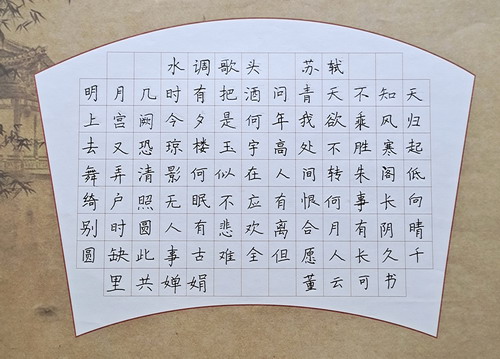 水调歌头 苏轼
明月几时有把酒问青天不知天
上宫阙今夕是何年我欲乘风归
去又恐琼楼玉宇高处不胜寒起
舞弄清影何似在人间转朱阁低
绮户照无眠不应有恨何事长向
别时圆人有悲欢离合月有阴晴
圆缺此事古难全但愿人长久千
里共婵娟 董云可书